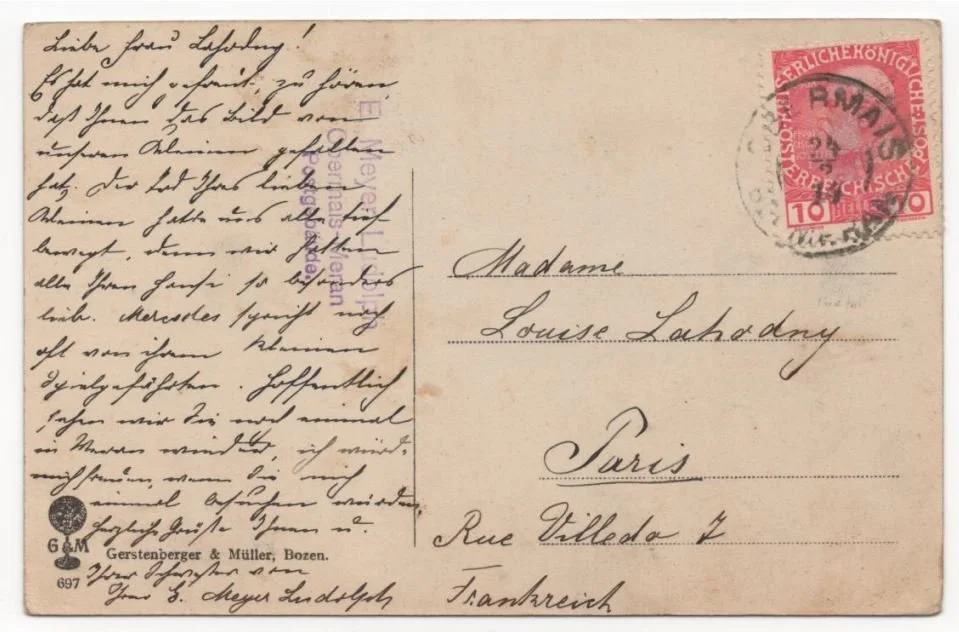 Liebe Frau Lahodny!
Es hat mich gefreut, zu hören
daß Ihnen das Bild von
unserer Kleinen gefallen
hat. Der Tod Ihres lieben
Kleinen hatte uns alle tief
bewegt, denn wir hatten
alle Ihren Hansi so besonders
lieb. Mercedes spricht noch
oft von ihrem kleinen
Spielgefährten. Hoffentlich
sehen wir Sie noch einmal
in Meran wieder, ich würde
mich freuen, wenn Sie mich
einmal besuchen würden,
herzliche Grüße Ihnen u.
Ihrer Schwester von
Ihrer E. Meyer Ludolph
E. Meyer-Ludolph
Obermais-Meran
Postgebäude.
G & M
697
Gerstenberger & Müller, Bozen.
KAISERLICHE KÖNIGLICHE
ÖSTERREICHISCHE POST
10 HELLER 10
OBERMAIS
14
MERAN
Madame
Louise Lahodny
Paris
Rue Villedo 7
Frankreich